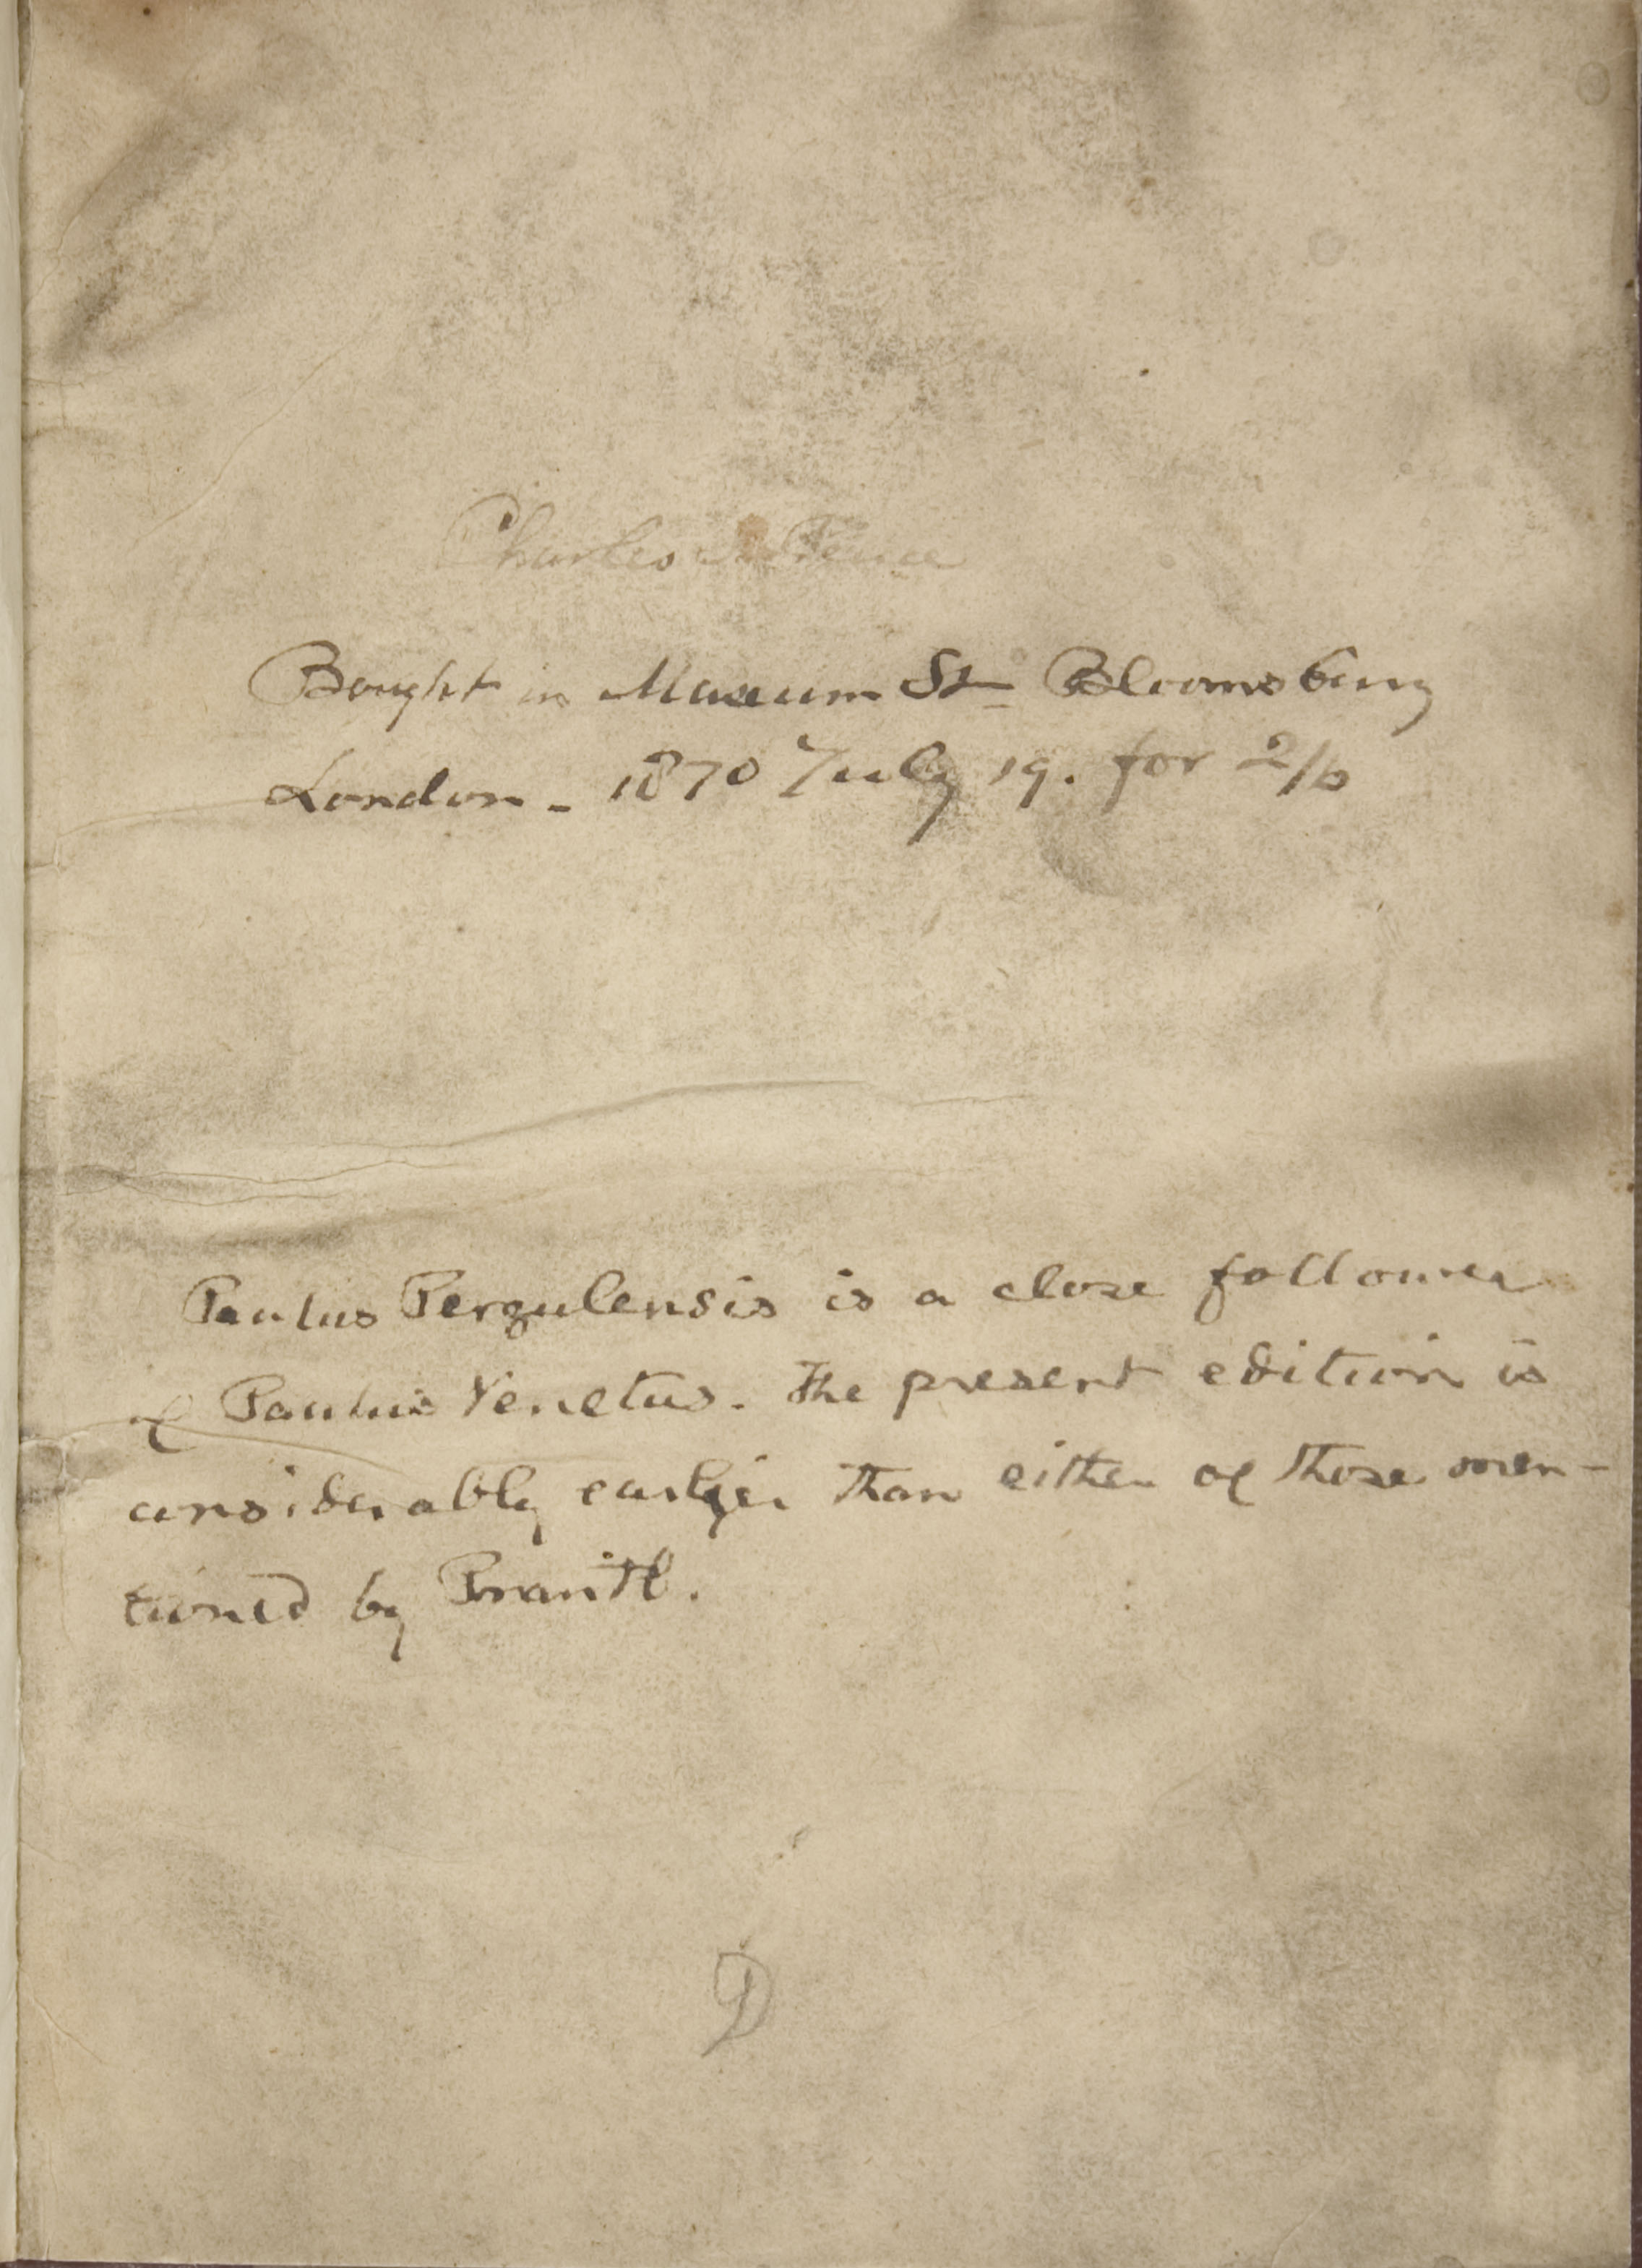 Charles S. Peirce
Bought in Museum St. Bloomsbury
London - 1870 July 19. for 2/6
Paulus Pergulensis is a close follower
of Paulus Venetus. The present edition is
considerably earlier than either of those men-
tioned by Prantl.
D